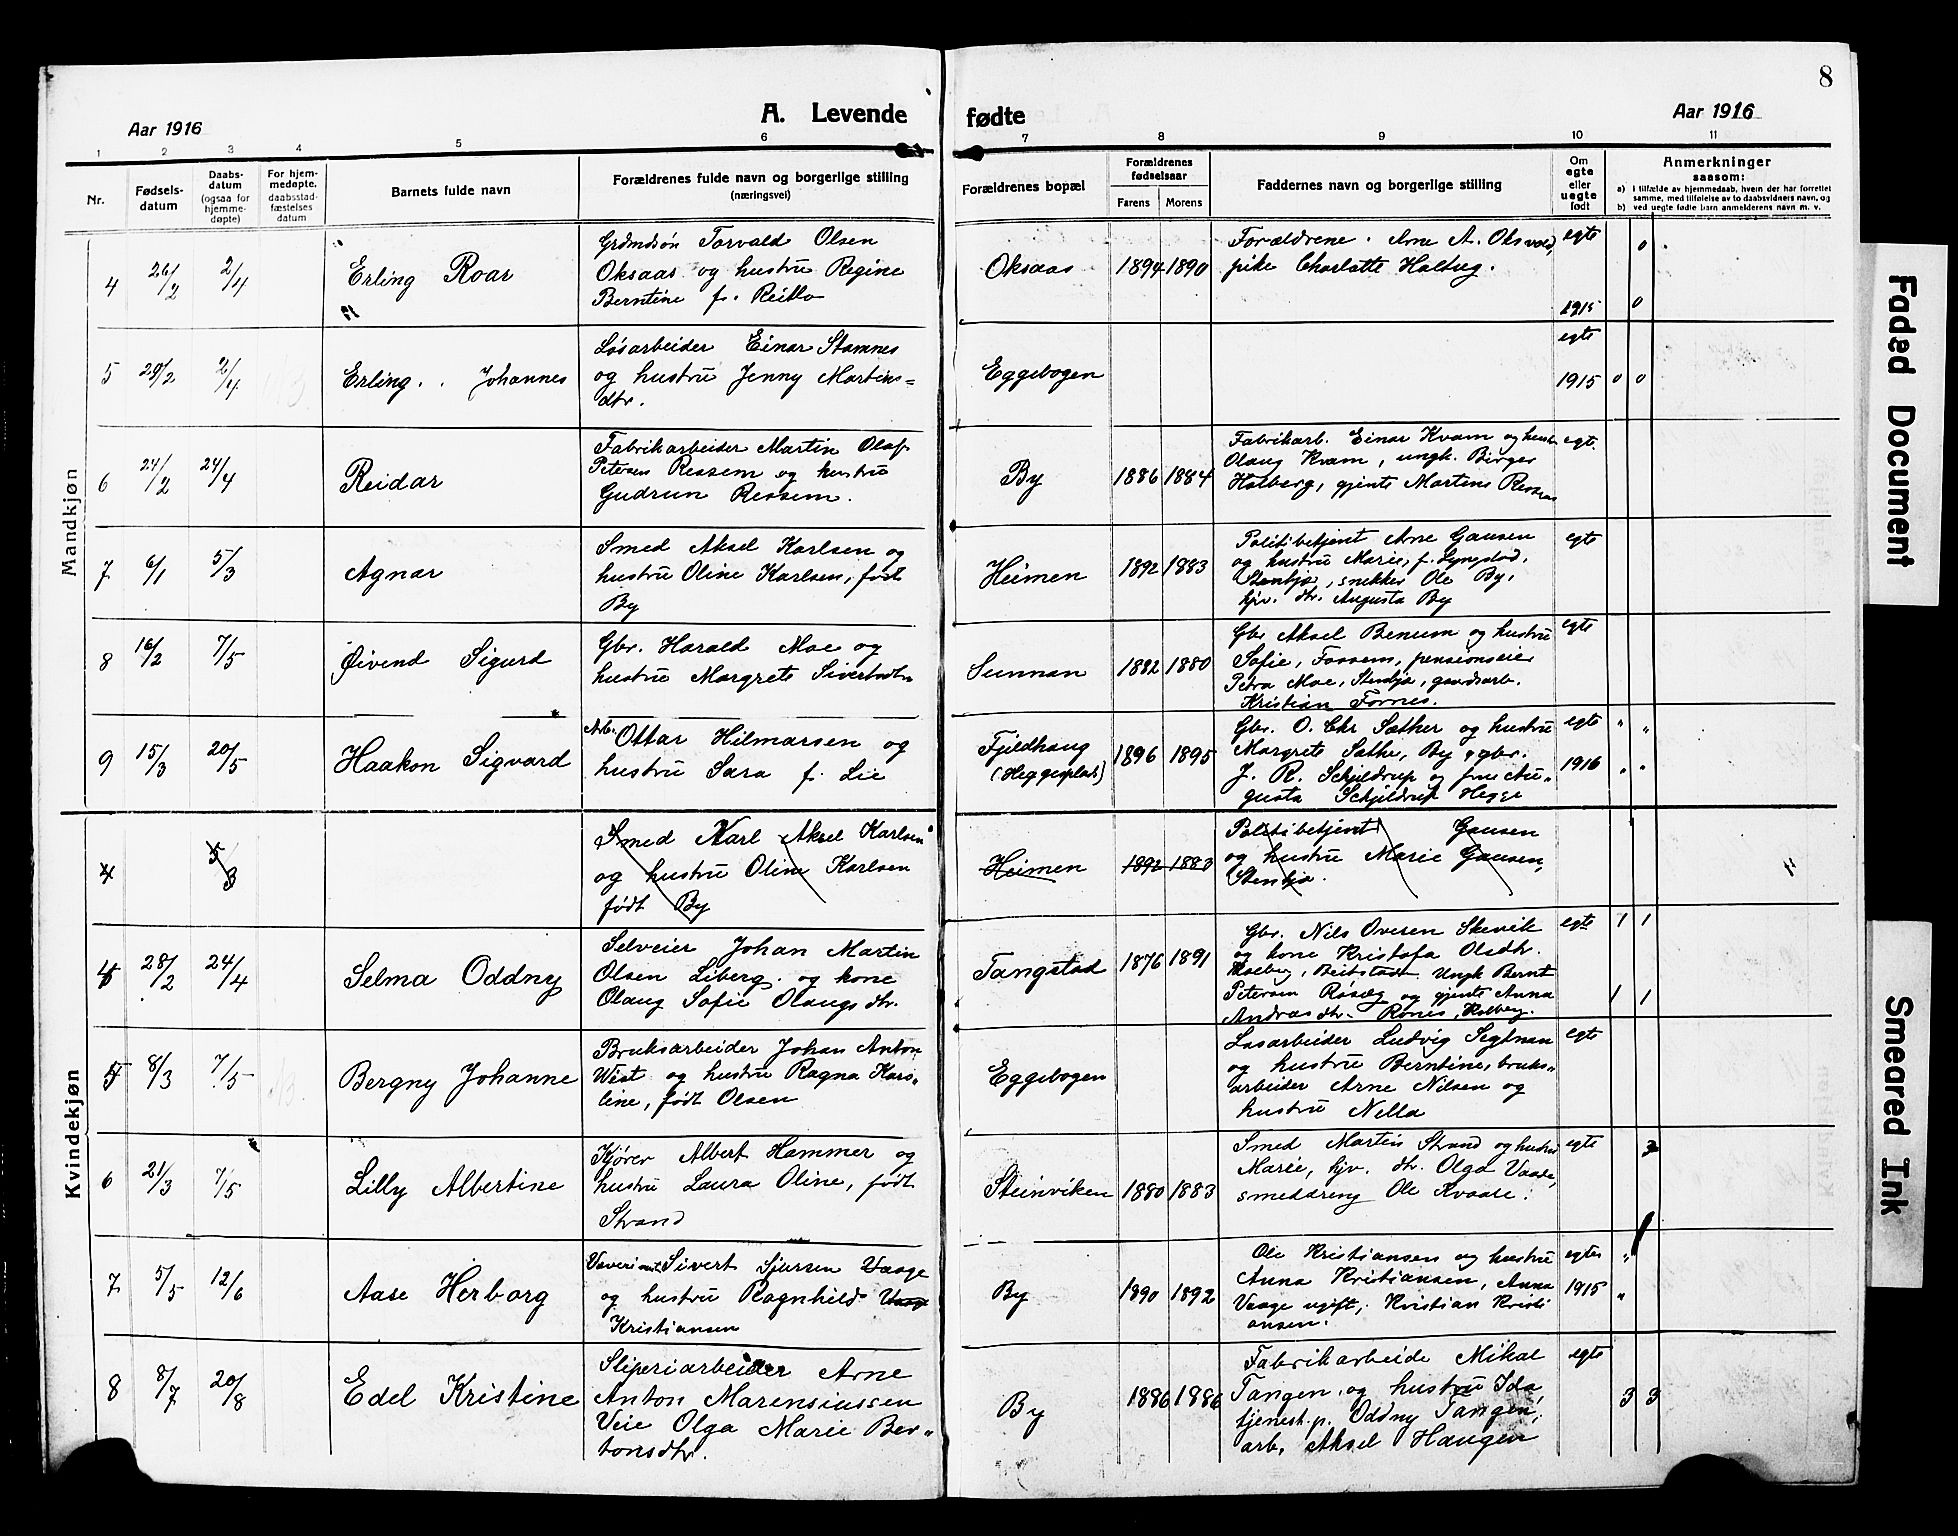 8
Aar 1916
A. Levende
fødte
Aar 1916
1 2 3 4 5 6 7 8 9 10 11
Nr.
Fødsels-
datum
Daabs-
datum
(ogsaa for
hjemme-
døpte)
For hjem-
medøpte,
daabsstad-
fæstelses
datum
Barnets fulde navn
Forældrenes fulde navn og borgerlige stilling
(næringsvei)
Forældrenes bopæl
Forældrenes
fødselsaar
Farens Morens
Faddernes navn og borgerlige stilling
Om
egte
eller
uegte
født
Anmerkninger
saasom:
a) i tilfælde av hjemmedaab, hvem der har forrettet
samme, med tilføielse av to daabsvidners navn, og
b) ved uegte fødte barn anmelderens navn m. v.
Mandkjøn
4 26/2 2/4 Erling Roar
Grdmdsøn Torvald Olsen
Oksaas og hustru Regine
Berntine f.
Oksaas 1894 1890
Forældrene. Arne A. Oksvold,
pike Charlotte Haltug.
egte
1915
0
0
5 29/2 2/4 Erling Johannes
Løsarbeider Einar Stamnes
og hustru Jenny Martins=
dtr.
Eggebogen
egte
1915 0 0
6 24/2 24/4 Reidar
Fabrikarbeider Martin Olaf
Petersen Ressem og hustru
Gudrun Ressem.
By 1886 1884
Fabrikarb. Einar Kvam og hustru
Olaug Kvam, ungk. Birger
Holberg, gjente Martine Ressem
egte.
7 6/1 5/3 Agnar
Smed Aksel Karlsen og
hustru Oline Karlsen, født
By
Heimen 1892 1883
Politibetjent Arne Gausen
og hustru Marie, f. Lyngstad,
Stenkjær, snekker Ole By,
hjv. dtr. Augusta By
egte
8 16/2 7/5 Øivend Sigurd
Gbr. Harald Moe og
hustru Margrete Sivertsdtr
Sunnan 1882 1880
Gbr Aksel Benum og hustru
Sofie, Fossem, pensionseier
Petra Moe, Stenkjær, gaardsarb.
Kristian Fornes.
egte
9 15/3 20/5 Haakon Sigvard
Arb. Ottar Hilmarsen og
hustru Sara f. Lie
Fjeldhaug
(Heggesplads)
1896 1895
Gbr. O. Chr Sæther og hustru
Margrete Sæther, By, gbr.
J. R. Schjeldrup og frue Au-
gusta Schjeldrup Hegge
egte " "
1916 " "
Kvindekjøn
4 5/3
Smed Karl Aksel Karlsen
og hustru Oline Karlsen
født By
Heimen 1892 1883
Politibetjent Gausen
og hustru Marie Gausen,
Stenkjær.
4 28/2 24/4 Selma Oddny
Selveier Johan Martin
Olsen Liberg og kone
Olaug Sofie Olaugsdtr.
Tangstad 1876 1891
Gbr. Nils Ovesen Skevik
og kone Kristofa Olsdtr.
Holberg, Beitstaden Ungk Bernt
Petersen Røseg og gjente Anna
Andrasdtr. Rønes, Holberg.
egte 1 1
1 1
5 8/3 7/5 Bergny Johanne
Bruksarbeider Johan Anton
Wist og hustru Ragna Karo-
line, født Olsen
Eggebogen
Løsarbeider Ludvig Segtnan
og hustru Berntine, bruks-
arbeider Arne Nilsen og
hustru Nella
egte
6 21/3 7/5 Lilly Albertine
Kjører Albert Hammer og
hustru Laura Oline, født
Strand
Steinviken 1880 1883
Smed Martin Strand og hustru
Marie, hjv. dtr. Olga Vaade,
smeddreng Ole Kvaale.
egte 3
7 5/5 12/6 Aase Herborg
Sivert Sjursen Vaage
og hustru Ragnhild Vaage
Kristiansen
By 1890 1892
Ole Kristiansen og hustru
Anna Kristiansen, Anna
Vaage ugift, Kristian Kristi
ansen.
egte "
1915 "
8 8/7 20/8 Edel Kristine
Sliperiarbeider Arne
Anton Marensiussen
Veie Olga Marie Ber-
tonsdtr.
By 1886 1886
Fabrikarbeide Mikal
Tangen og hustru Ida,
tjenest.p. Oddny Tangen,
arb. Aksel Haugen
egte
3 3
Faded Document
Smeared Ink